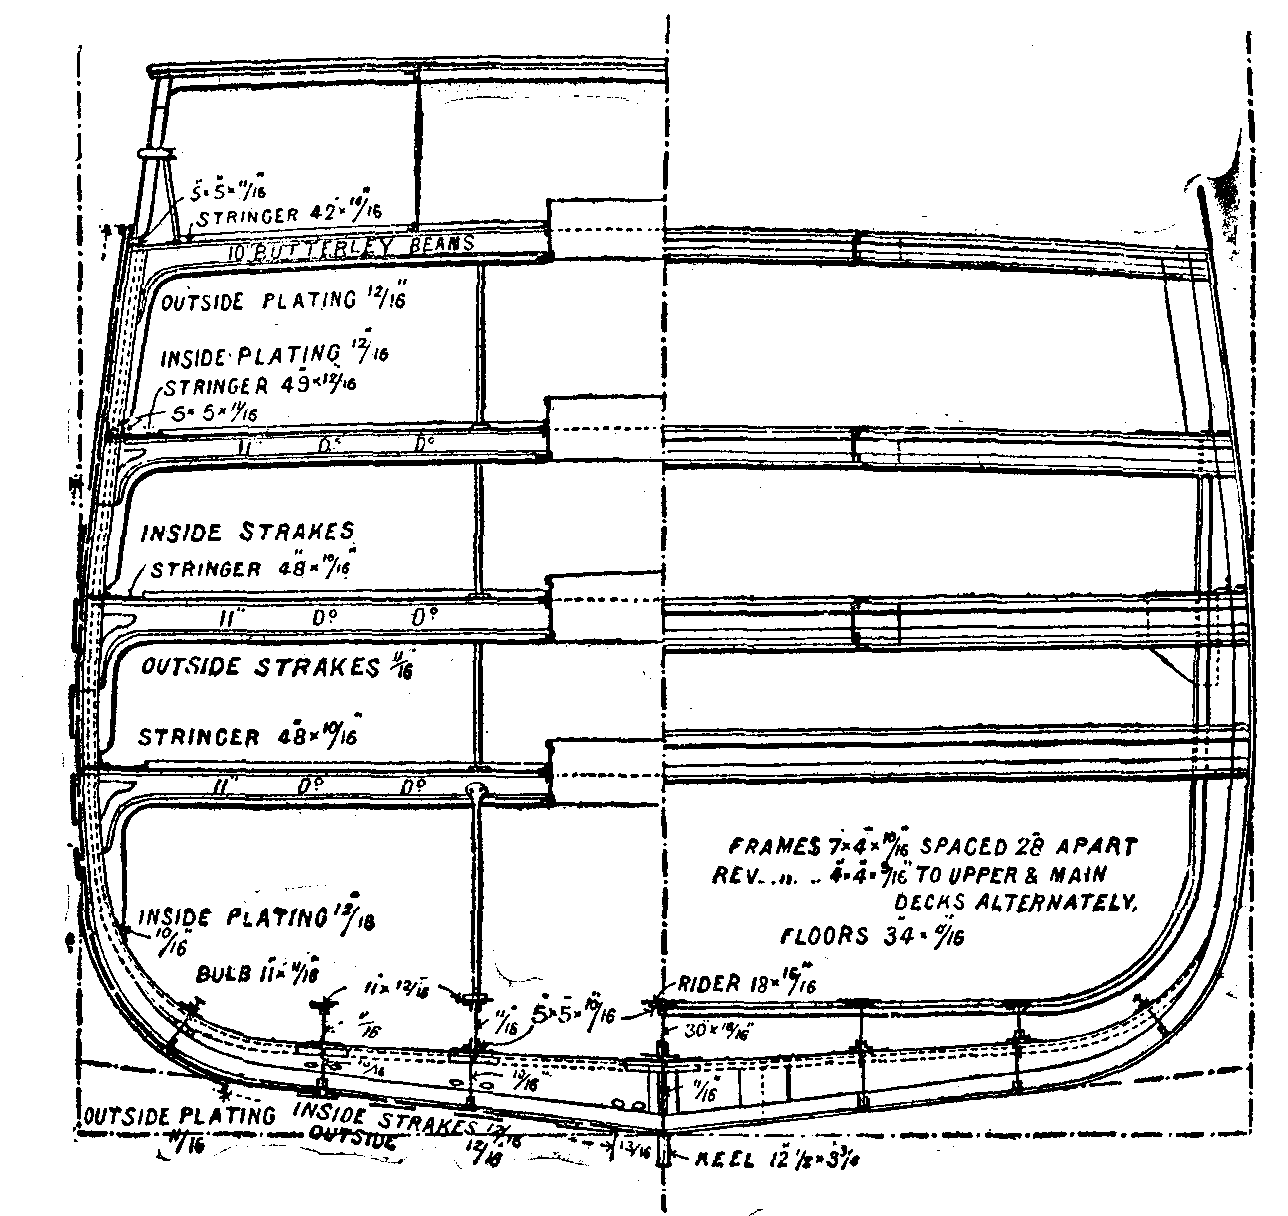 5" × 5" × 11/16"
STRINGER 42" × 14/16"
10 BUTTERLEY BEAMS
OUTSIDE PLATING 12/16"
INSIDE PLATING 12/16"
STRINGER 49" × 12/16"
5" × 5" × 11/16
11" Do Do
INSIDE STRAKES
STRINGER 48" × 10/16"
11" Do Do
OUTSIDE STRAKES 11/16"
STRINGER 48" × 10/16"
11" Do Do
FRAMES 7" × 4" × 10/16" SPACED 28" APART
REV. " .. 4" × 4" × 9/16" TO UPPER & MAIN
DECKS ALTERNATELY.
FLOORS 34" ×
INSIDE PLATING
10/16"
BULB 11" × 11/16"
11" × 12/16"
11/16"
5" × 5" × 10/16"
RIDER 18" ×
30" ×
11/16
10/16
10/16"
11/16"
OUTSIDE PLATING
11/16
INSIDE STRAKES
OUTSIDE
12/16"
13/16
KEEL 12" 1/2 × 3 3/4